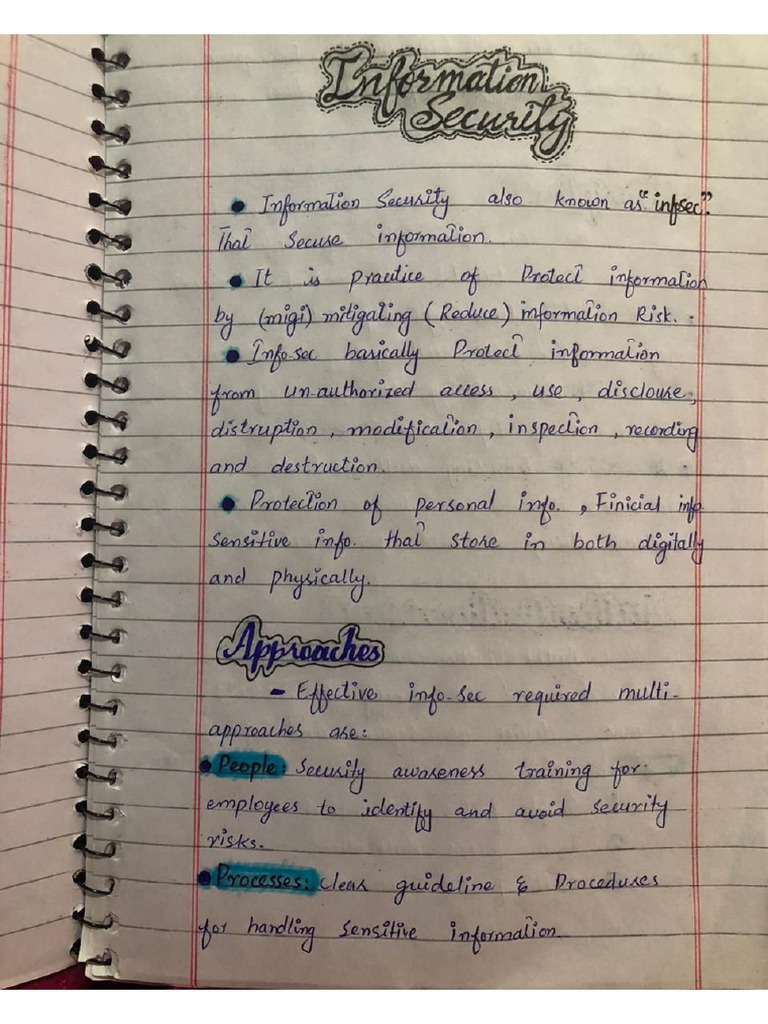 Information
Security
• Information Security also known as "infosec".
That secure information.
• It is practice of Protect information
by (migi) mitigating (Reduce) information Risk.
• Info-sec basically Protect information
from un-authorized access, use, disclouse,
distruption, modification, inspection, recording
and destruction.
• Protection of personal info., Finicial info.
sensitive info. that store in both digitally
and physically.
Approaches
- Effective info-sec required multi-
approaches are:
• People: Security awareness training for
employees to identify and avoid security
risks.
• Processes: clear guideline & Procedures
for handling sensitive information.